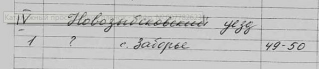 IV Новозыбковский уезд
1 ? с. Загорье 49-50